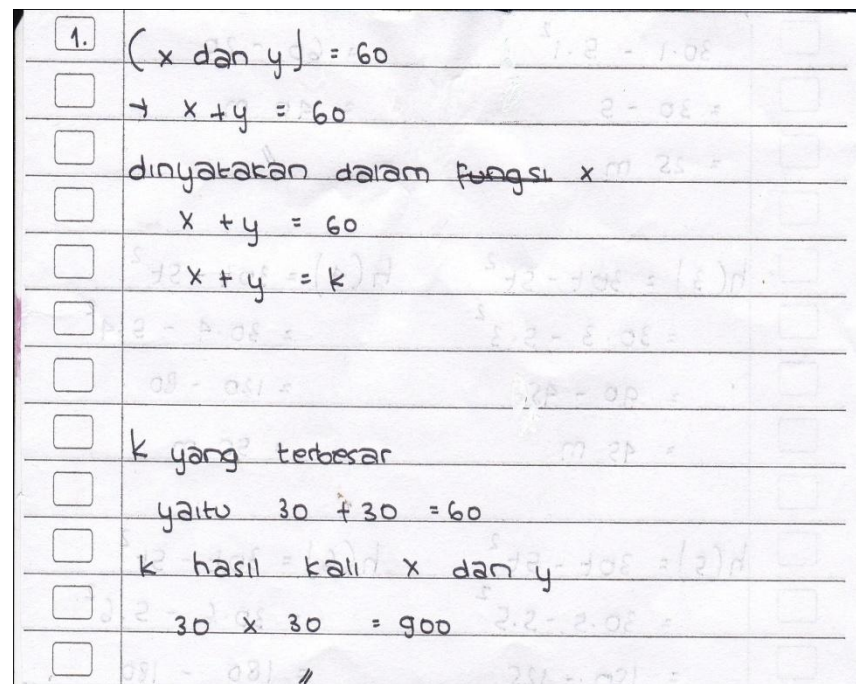 1. (x dan y) = 60
→ x + y = 60
dinyatakan dalam fungsi x
x + y = 60
x + y = k
k yang terbesar
yaitu 30 + 30 = 60
k hasil kali x dan y
30 x 30 = 900
//